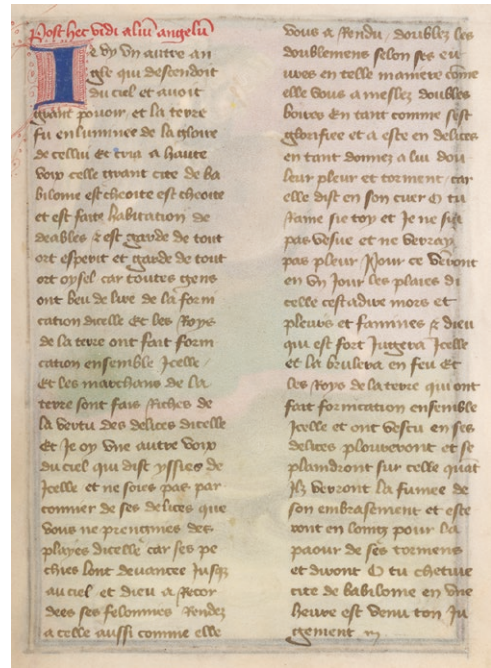 Post hec vidi aliu angelu
Ie vy vn autre an
gle qui descendoit
du ciel et avoit
grant pouoir et la terre
fu enluminee de la gloire
de cellui et cria a haute
voix celle grant cite de ba
bilonne est cheoite est cheoite
et est faite habitacion de
deables & est garde de tout
ort esperit et garde de tout
ort oysel car toutes gens
ont beu de lire de la forni
cation dicelle Et les Roys
de la terre ont fait forni
cation ensemble Icelle
Et les marchans de la
terre sont fais Riches de
la vertu des delices dicelle
Et Je oy vne autre voix
du ciel qui dist yssies de
Icelle et ne soies pas par
connier de ses delices que
vous ne prengnies des
playes dicelle car ses pe
chies sont devances Jusqz
au ciel et dieu a Recor
dees ses felonnies Rendez
a celle aussi comme elle
vous a Rendu doublez les
doublemens selon ses eu
ures en telle maniere come
elle vous a meslez doubles
boires En tant comme sest
glorifiee et a este en delices
en tant donnez a lui dou
leur pleur et torment car
elle dist en son cuer O tu
Dame sie toy et Je ne suy
pas vesue et ne verray
pas pleur Pour ce vendront
en vn Jour les plaies di
celle cest adire mors et
pleurs et famines & dieu
qui est fort Jugera Icelle
et la brulera en feu Et
les Roys de la terre qui ont
fait fornication ensemble
Icelle et ont vescu en ses
delices plouveront et se
plaindront sur celle quat
Ilz verront la fumee de
son embrasement et este
ront en loing pour la
paour de ses tormens
et diront O tu chetiue
cite de babilonne en vne
heure est venu ton Ju
gement